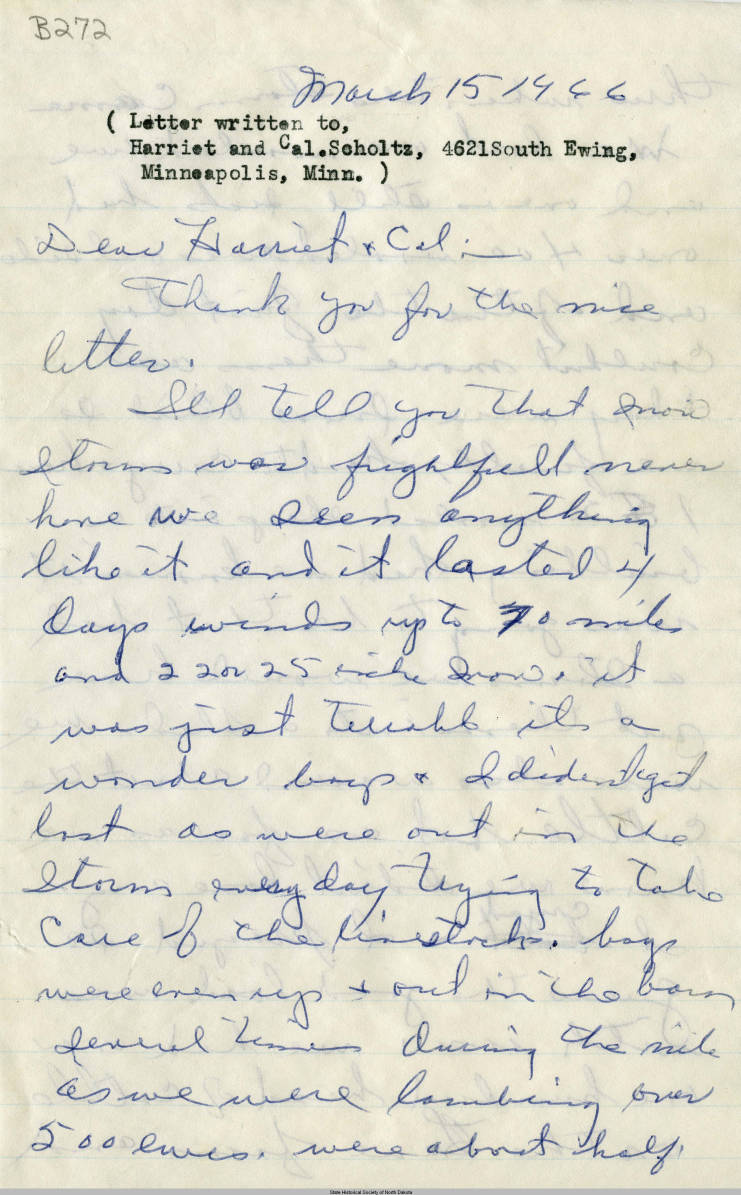 B272
March 15 1966
( Letter written to,
Harriet and Cal.Scholtz, 4621South Ewing,
Minneapolis, Minn. )
Dear Harriet & Cal:—
Thank you for the nice
letter.
Ill tell you that snow
storm was frightfull never
have we seen anything
like it and it lasted 4
Days winds up to 70 miles
and 22 or 25 inche snow. it
was just terrable its a
wonder boys & I diden't get
lost as were out in the
storm every day trying to take
care of the livestock. boys
were even up & out in the barn
several times during the nite
as we were lambing over
500 ewes. were about half
State Historical Society of North Dakota